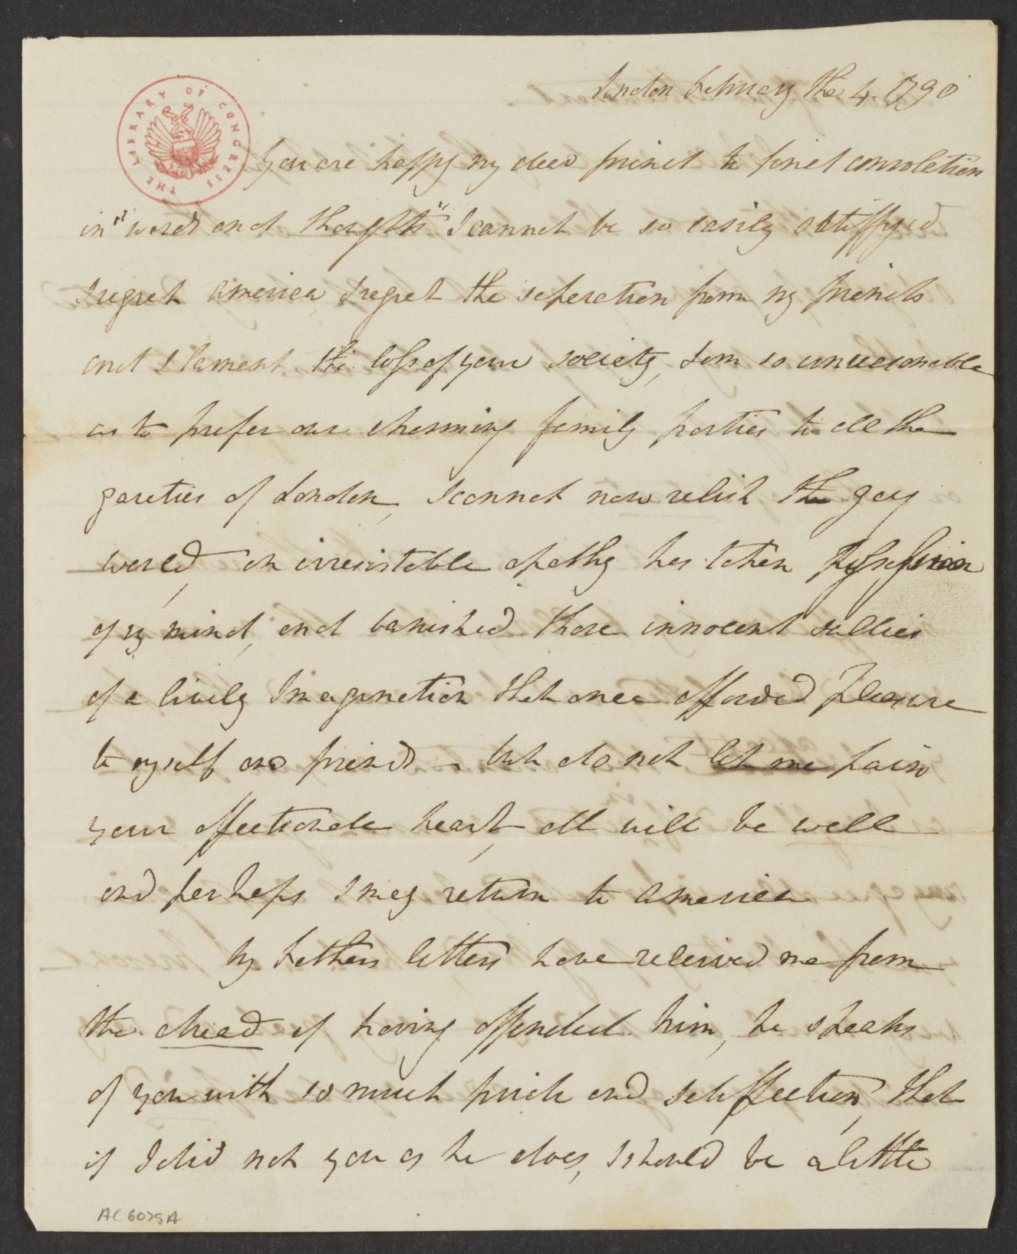 London February the 4 1790
THE LIBRARY OF CONGRESS
You are happy my dear friend to find consolation
in "words and thoughts" I cannot be so easily satisfyed
I regret America, I regret the seperation from my friends
and I lament the loss of your society, I am so unreasonable
as to prefer our charming family parties to all the
gaieties of London, I cannot now relish the gay
world, an irresistable apathy has taken possession
of my mind, and banished those innocent sallies
of a lively Imagination that once afforded pleasure
to myself and friends – but do not let me pain
your affectionate heart, all will be well
and perhaps I may return to America
My fathers letters have relieved me from
the dread of having offended him, he speaks
of you with so much pride and satisfaction, that
if I did not you as he does, I should be a little
AC 6029A